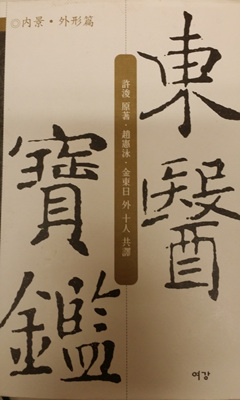 ◎內景·外形篇
東醫
寶鑑
許浚 原著·趙憲泳·金東日 外 十人 共譯
여강